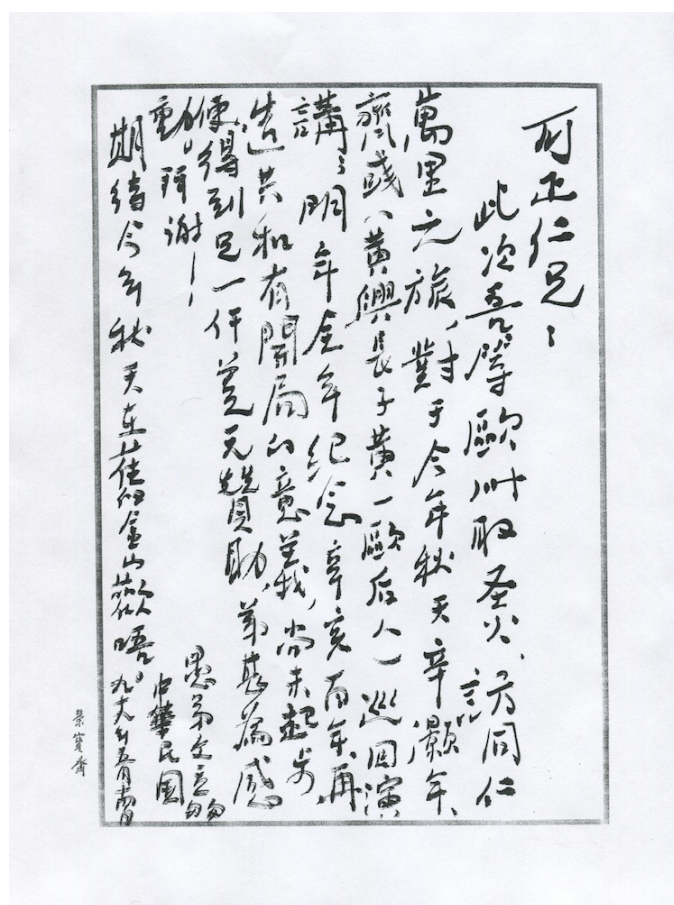 可正仁兄：
此次吾等歐州取圣火、諸同仁
萬里之旅，對于今年秋天辛灝年、
齊彧（黄興長子黄一歐后人）巡回演
講；明年全年纪念辛亥百年、再
造共和有開局的意義，尚未起步，
便得到兄一仟美元贊助，弟甚為感
動，拜谢！
期待今年秋天在舊金山歡晤。
愚弟
匆匆
中華民國
九十九年五月
榮寶齋